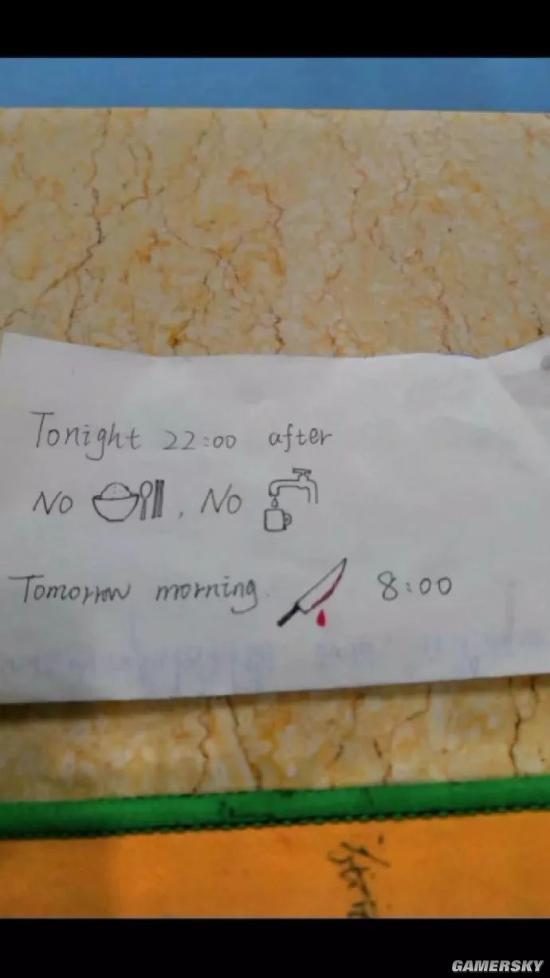 Tonight 22:00 after
No , No
Tomorrow morning. 8:00
GAMERSKY